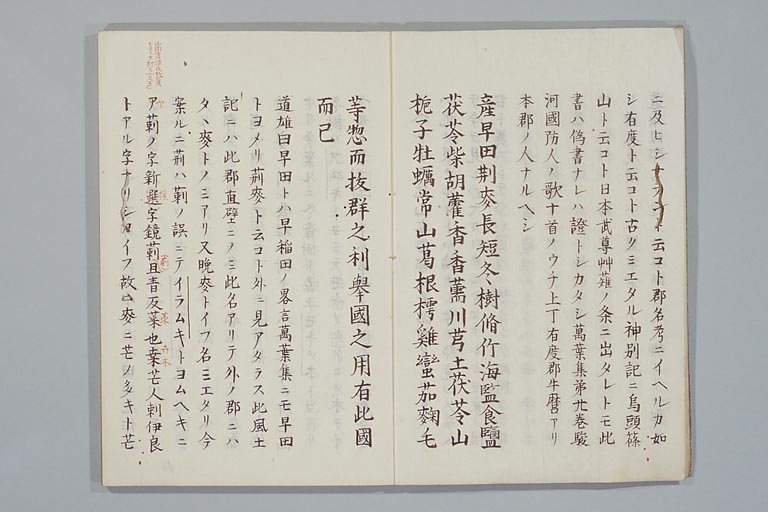 ニ及ヒシナラント云コト郡名考ニイヘルカ如
シ有度ト云コト古クミエタル神別記ニ烏頭篠
山ト云コト日本武尊艸薙ノ条ニ出タレトモ此
書ハ偽書ナレハ證トシカタシ萬葉集第廿巻駿
河國防人ノ歌十首ノウチ上丁有度郡牛麿アリ
本郡ノ人ナルヘシ
産早田荆麥長短冬〻樹脩竹海監食鹽
茯苓柴胡藿香香薷川芎土茯苓山
梔子牡蠣常山葛根樗雞蛍茄麴毛
䓁惣而抜群之利舉國之用有此國
而已
道雄曰早田トハ早稲田ノ畧言萬葉集ニモ早田
トヨメリ荊麥ト云コト外ニ見アタラス此風土
記ニハ此郡直壁ニノミ此名アリテ外ノ郡ニハ
タヽ麥トノミアリ又晩麥トイフ名ミエタリ今
案ルニ荊ハ莿ノ誤ニテイラムキトヨムヘキニ
ヤ莿ノ字新選字鏡莿且青反菜也芒人刺伊良
トアル字ナリシカイフ故ハ麥ニ芒ノ多キト芒